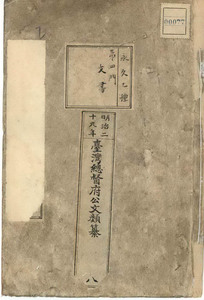 00077
永久乙種
第四門
文書
明治二
十九年
臺灣總督府公文類纂
八